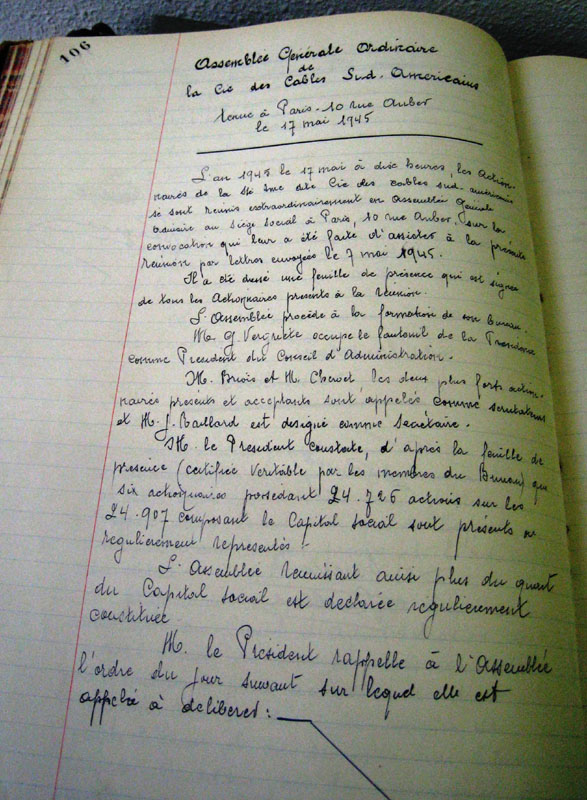 106
Assemblée Générale Ordinaire
de
la Cie des Cables Sud-Americains
tenue à Paris-10 rue Auber
le 17 mai 1945
L'an 1945 le 17 mai à dix heures, les Action-
naires de la Sté Ame dite Cie des cables sud-américains
se sont reunis extraordinairement en Assemblée générale
au Siège Social à Paris, 10 rue Auber, sur la
convocation qui leur a été faite d'assister à la presente
réunion par lettres envoyées le 7 mai 1945.
Il a été dressé une feuille de présence qui est signée
de tous les Actionnaires présents à la réunion.
L'Assemblée procède à la formation de son bureau.
M. G Vergriete occupe le fauteuil de la Presidence
comme President du Conseil d'Administration.
M. Briois et M. les deux plus forts action-
naires présents et acceptants sont appelés comme scrutateurs
et M. J. Raillard est designé comme Secrétaire.
M. le President constate, d'après la feuille de
presence (certifiée veritable par les membres du Bureau) que
six actionnaires possedant 24.726 actions sur les
24.907 composant le Capital social sont présents ou
regulierement representés.
L'Assemblée reunissant ainsi plus du quart
du Capital social est declarée regulierement
constituée.
M. le Président rappelle à l'Assemblée
l'ordre du jour suivant sur lequel elle est
appelée à deliberer: